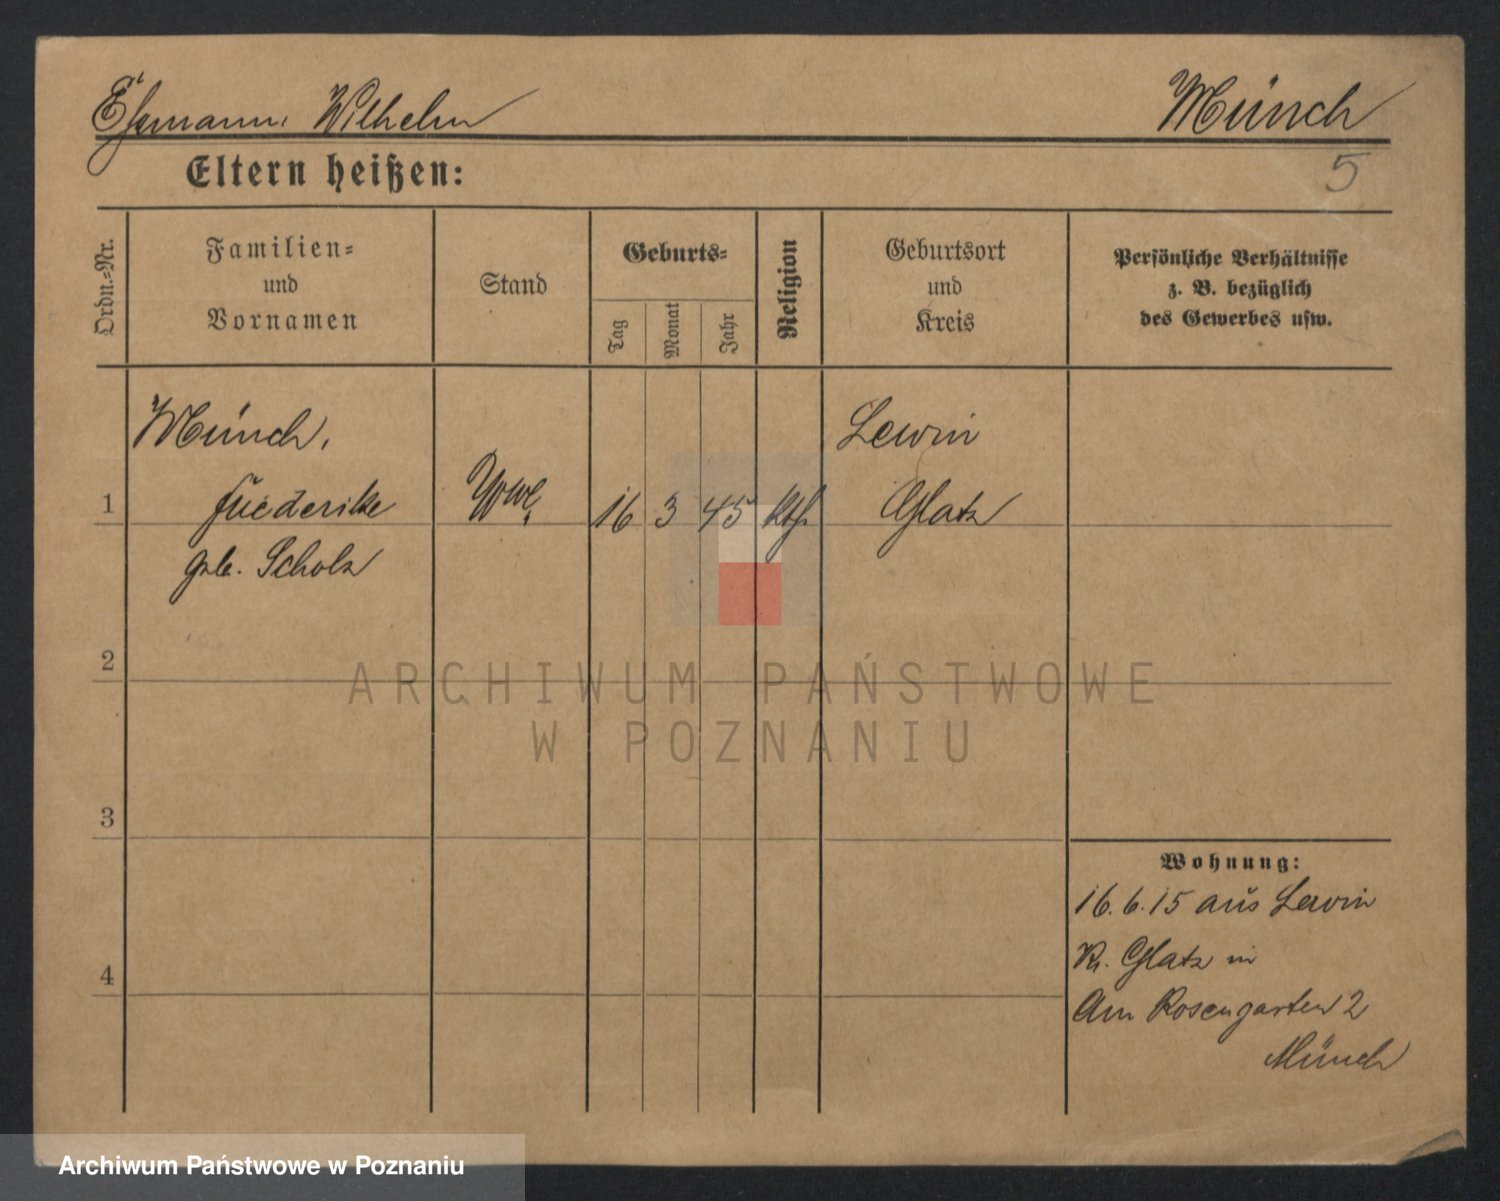 Ehemann: Wilhelm Münch
Eltern heißen: 5
Ordn.=Nr.
Familien=
und
Vornamen
Stand
Geburts=
Tag
Monat
Jahr
Religion
Geburtsort
und
Kreis
Persönliche Verhältnisse
z. B. bezüglich
des Gewerbes usw.
Münch, Lewin
1 Friederike Wwe. 16 3 45 kth. Glatz
geb. Scholz
2
3
4
Wohnung:
16.6.15 aus Lewin
Kr. Glatz in
Am Rosengarten 2
Münch
ARCHIWUM PAŃSTWOWE
W POZNANIU
Archiwum Państwowe w Poznaniu